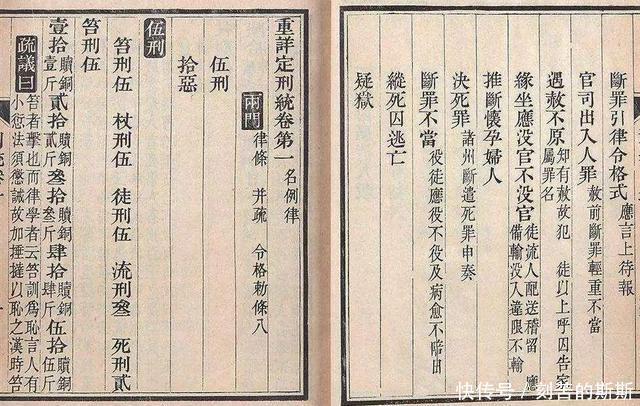 斷罪引律令格式 應言上待報
官司出入人罪 赦前斷罪輕重不當
遇赦不原 知有赦故犯 徒以上呼囚告家
屬罪名
緣坐應沒官不沒官 徒流人配送稽留 應
備輸沒入違限不輸
推斷懷孕婦人
決死罪 諸州斷遣死罪申奏
斷罪不當 役徒應役不役及病愈不陪日
縱死囚逃亡
疑獄
重詳定刑統卷第一 名例律
兩門 律條 并疏 令格勅條八
伍刑
拾惡
伍刑
笞刑伍 杖刑伍 徒刑伍 流刑叄 死刑貳
笞刑伍
壹拾 贖銅壹斤 貳拾 贖銅貳斤 叄拾 贖銅叄斤 肆拾 贖銅肆斤 伍拾 贖銅伍斤
疏議曰 笞者擊也而律學者云笞訓爲恥言人有
小愆法須懲誡故加捶撻以恥之漢時笞
快传号 / 刻苦的斯斯